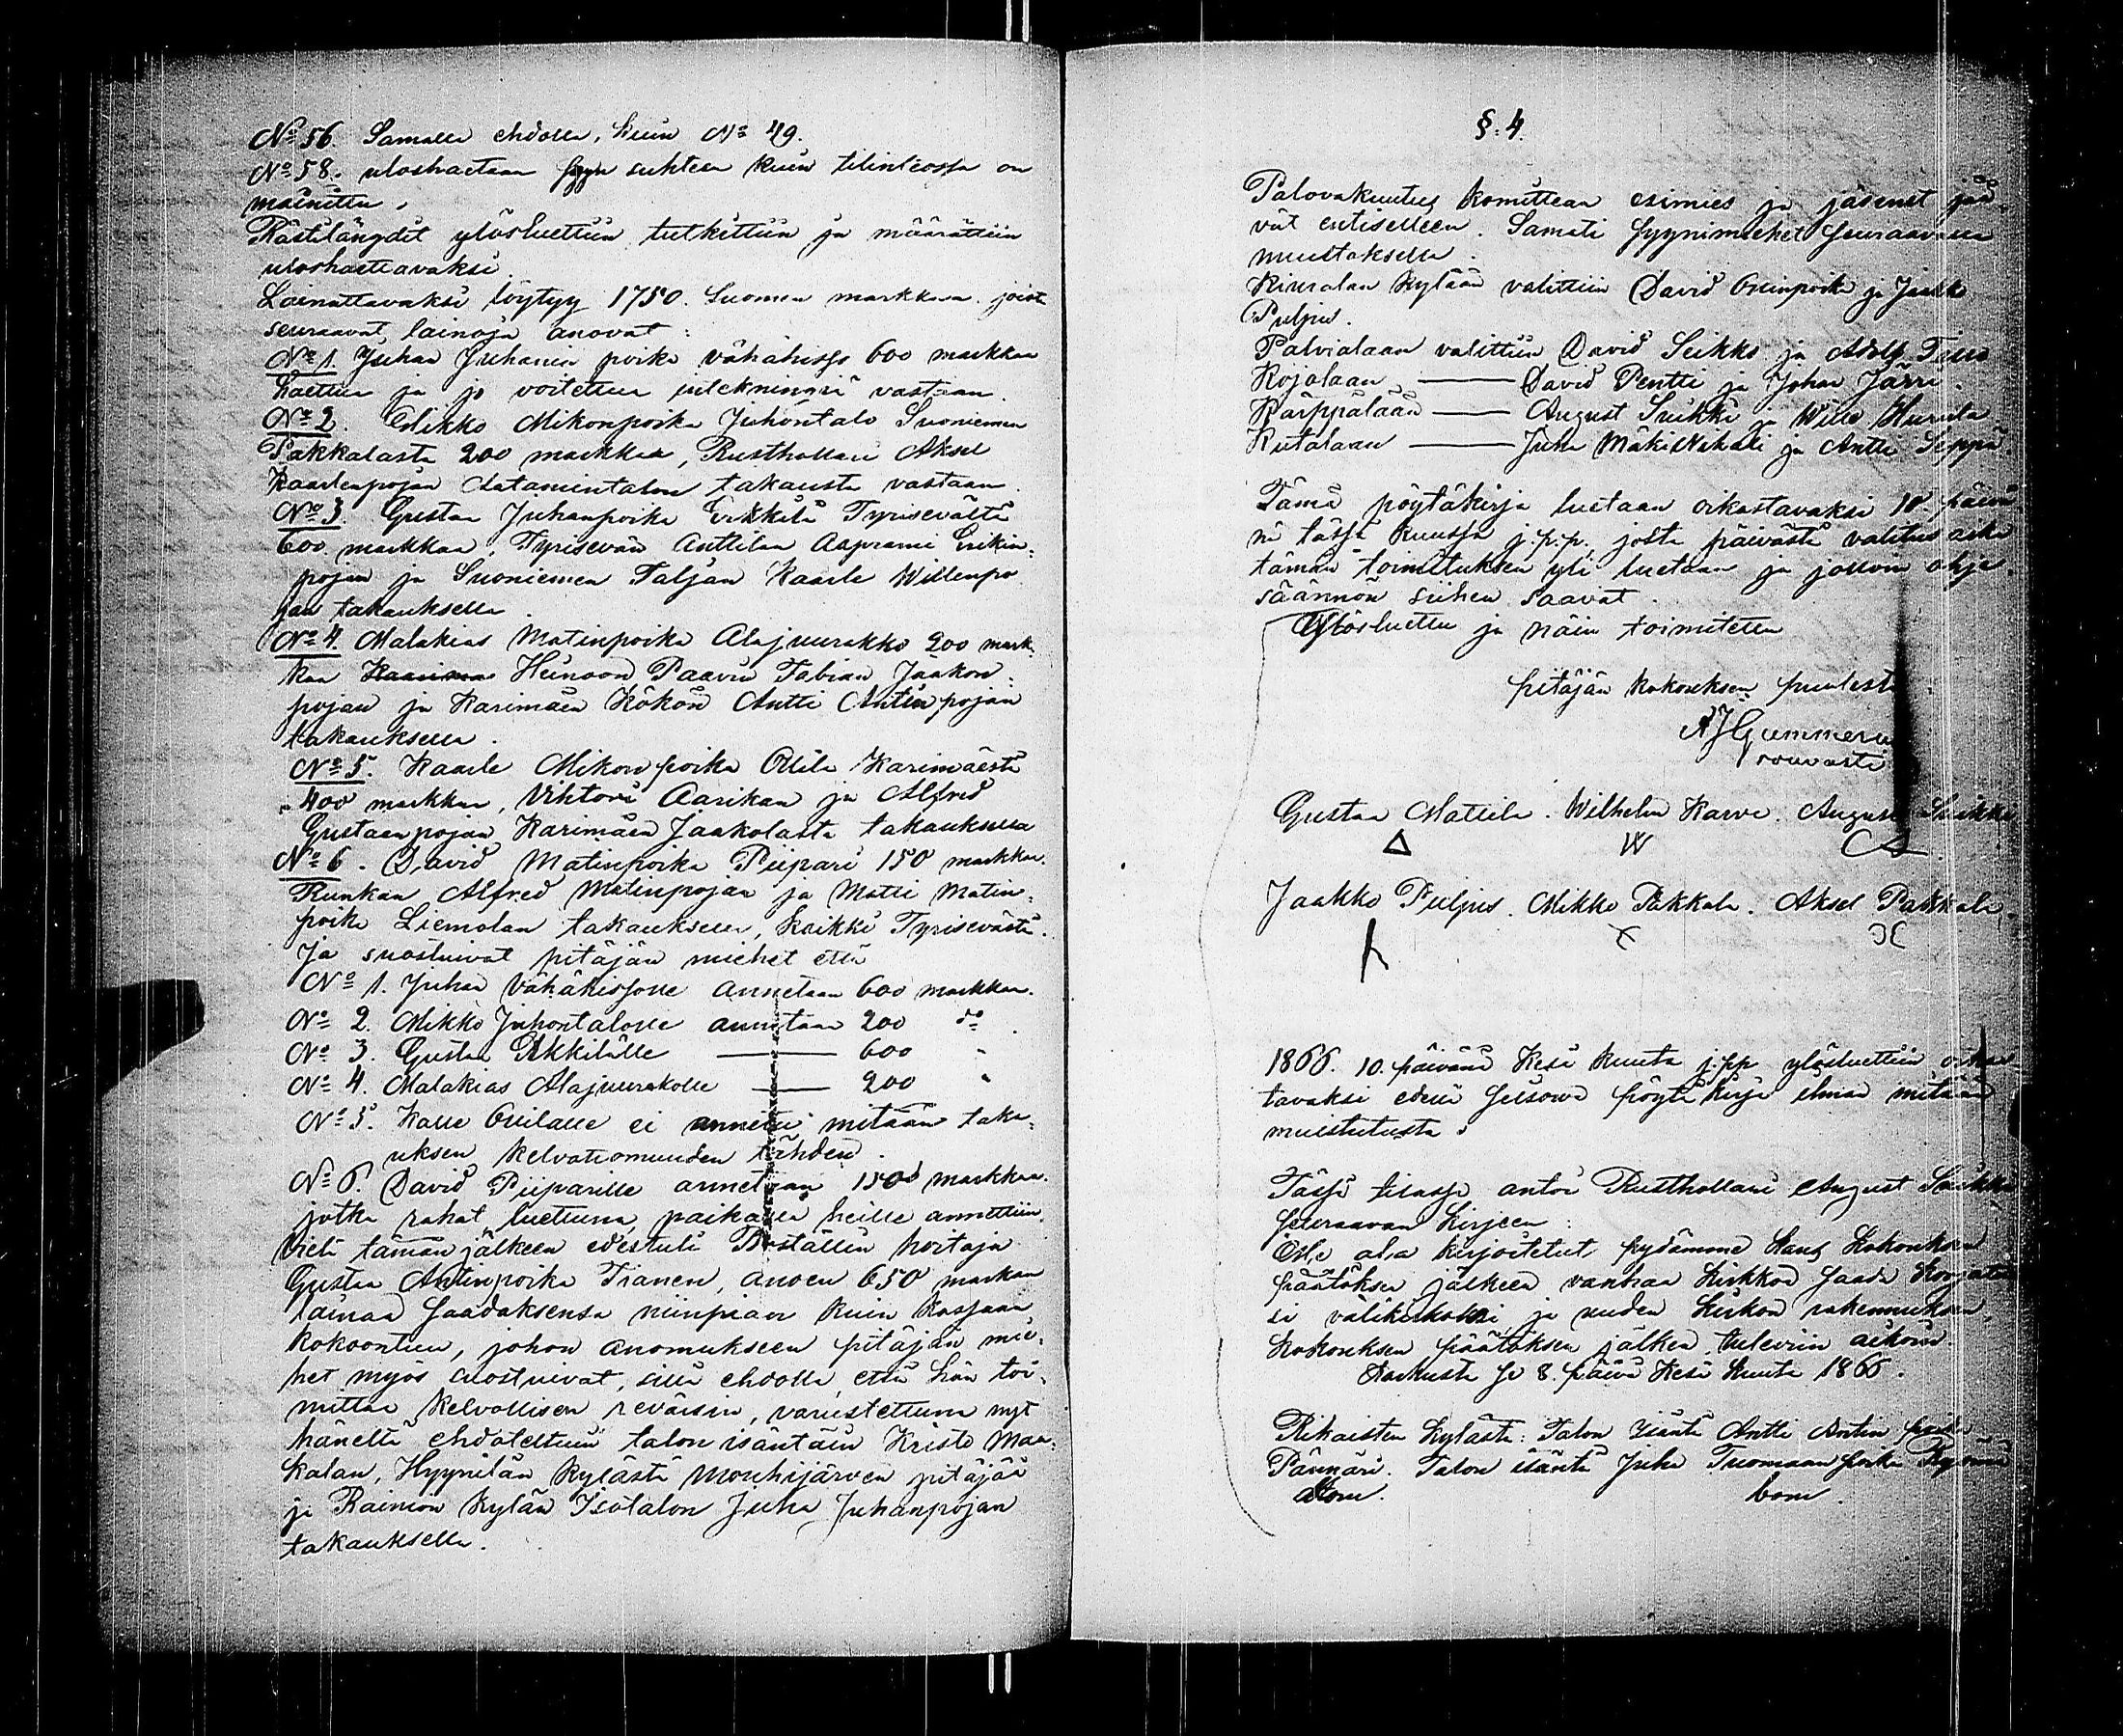 No 56. Samalla ehdolla, kuin No 49.
No 58. uloshaetaan syyn suhteen kuin tilinteossa on
mainittu.
Rästilängdit ylösluettiin tutkittiin ja määrättiin
uloshaettavaksi.
Lainattavaksi löytyy 1750. Suomen markkaa. joista
seuraavat lainoja anovat:
No 1. Juhan Juhanan poika vähähisso 600 markkaa
haettua ja jo voitettua inteckningiä vastaan.
No 2. Mikko Mikonpoika Juhontalo Suoniemen
Pakkalasta 200 markkaa, Rusthollari Aksel
Kaarlenpojan AataminTalon takausta vastaan.
No 3. Gustaa Juhanpoika Erkkilä Tyrisevältä
600. markkaa, Tyrisevän Anttilan Aaprami Erikin-
pojan ja Suoniemen Taljan Kaarle Willenpo
jan takauksella.
No 4. Malakias Matinpoika Alajuurakko 200 mark-
kaa Heinoon Paavin Fabian Jaakon-
pojan ja Karimäen Kökön Antti Antinpojan
takauksella.
No 5. Kaarle Mikonpoika Ollila Karimäestä
400 markkaa, Viktori Aarikan ja Alfred
Gustaanpojan Karimäen Jaakolasta takauksella
No 6. David Matinpoika Piipari 150 markkaa.
Runkan Alfred Matinpojan ja Matti Matin-
poika Liemolan takauksella, kaikki Tyrisevästä.
Ja suostuivat pitäjän miehet että
No 1. Juhan Vähähissolle annetaan 600 markkaa.
No 2. Mikko Juhontalolle annetaan 200 do.
No 3. Gustaa Erkkilälle — 600 "
No 4. Malakias Alajuurakolle — 200 "
No 5. Kalle Ollilalle ei anneta mitään taka-
uksen kelvottomuuden tähden.
No 6. David Piiparille annetaan 150 markkaa.
jotka rahat luettuna paikalla heille annettiin.
Vielä tämän jälkeen edestuli Poställin hoitaja
Gustaa Antinpoika Tranen, anoen 650 markan
lainaa saadaksensa niinpian kuin kassaan
kokoontuu, johon anomukseen pitäjän mie-
het myös suostuivat, sillä ehdolla, että hän toi-
mittaa kelvollisen reväisin, varustettuna nyt
häneltä ehdoteltuin talon isäntäin Kristo Maa-
kalan, Hyynilän kylästä Mouhijärven pitäjää
ja Rainion kylän Isotalon Juha Juhanpojan
takauksella.
§. 4.
Palovakuutus komittean esimies ja jäsenet jää-
vät entiselleen. Samati syynimiehet seuraavalla
muutoksella.
Kiuralan kylään valittiin David Ossinpoika ja Jaakko
Puljus.
Palvialaan valittiin David Seikko ja Adolf
Kojolaan — David Pentti ja Johan Järri.
Kärppälään — August Suikki ja Wille
Kutalaan — Juha ja Antti Seppä.
Tämä pöytäkirja luetaan oikastavaksi 10. päivä
nä tässä kuussa j.p.p. josta päivästä valitus aika
tämän toimituksen yli luetaan ja jolloin ohje-
säännön siihen saavat.
Ylösluettu ja näin toimitettu
pitäjän kokouksen puolesta:
A J Gummerus
rovasti
Gustaa Mattila. Wilhelm Karvo. August Suikki
Jaakko Puljus. Mikko Pakkala. Aksel Pakkala.
1866. 10. päivänä Kesä kuuta j.pp ylösluettiin oikas
tavaksi edellä seisova pöytäkirja ilman mitään
muistutusta.
Tässä tilassa antoi Rusthollari August Suikki
seuraavan kirjeen:
Että alla kirjoitetut pydämme
päätöksen jälkeen vanhaa kirkkoa saada korjata
si välikirkoksi, ja uuden kirkon rakennuksen,
kokouksen päätöksen jälkeen, tuleviin aikoin.
Karkusta se 8. päivä Kesä kuuta 1866.
Rikaisten kylästä: Talon Isäntä Antti Antin poika
Pännäri. Talon isäntä Juha Tuomaan poika
bom.